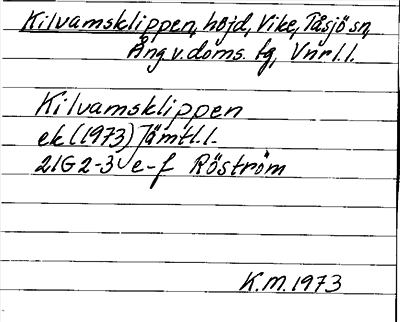 Kilvamsklippen, höjd, Vike, Tåsjö sn,
Ång.v.doms. fg, Vnrl.l.
Kilvamsklippen
ek (1973) Jämtl.l.
21G 2-3 e-f Röström
K.M. 1973